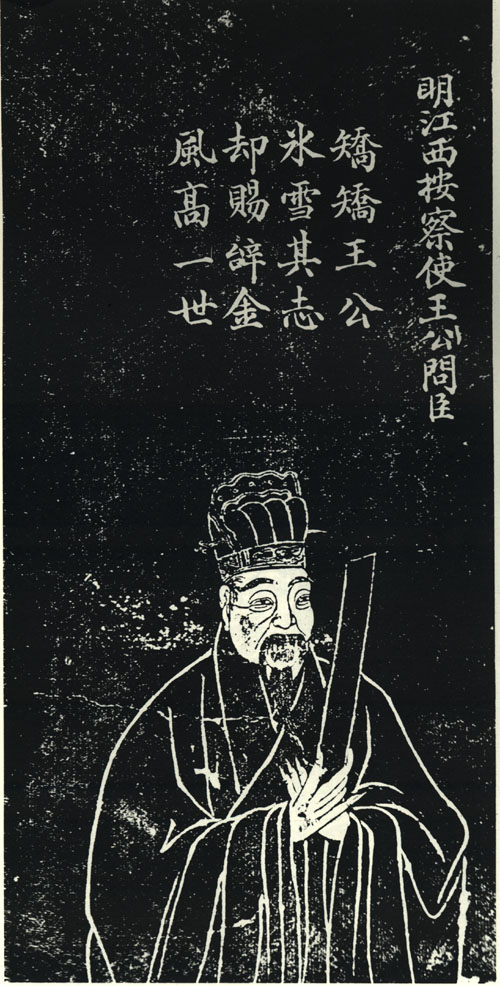 明江西按察使王公問臣
矯矯王公
氷雪其志
却賜辞金
風高一世